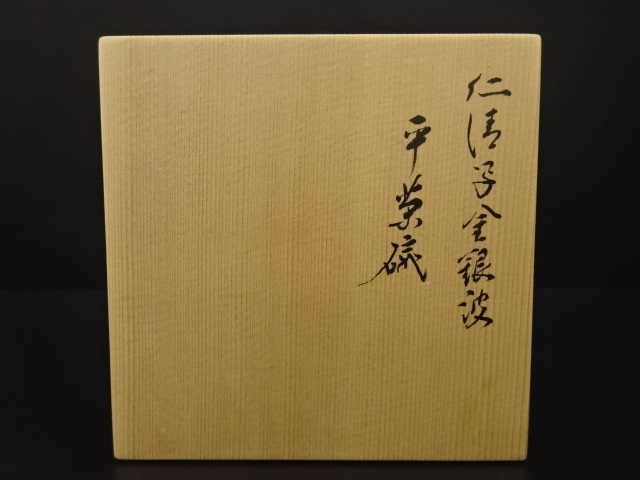 仁清写金銀波
平茶碗